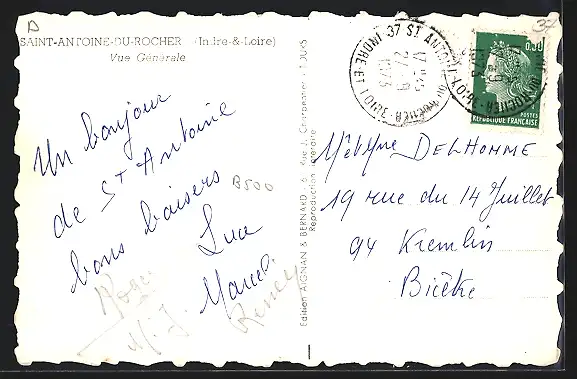 D
37
SAINT-ANTOINE-DU-ROCHER (Indre-&-Loire)
Vue Générale
Un bonjour
de St Antoine
bons baisers
Luce
Marcel
Roger
M. J.
B500
Edition AIGNAN & BERNARD - 6, Rue J.
Reproduction interdite
37 ST ANTOINE DU ROCHER
INDRE-ET-LOIRE
17 H
27-9
1973
0,30
POSTES
REPUBLIQUE FRANÇAISE
DELHOMME
19 rue du 14 Juillet
94 Kremlin
Bicêtre